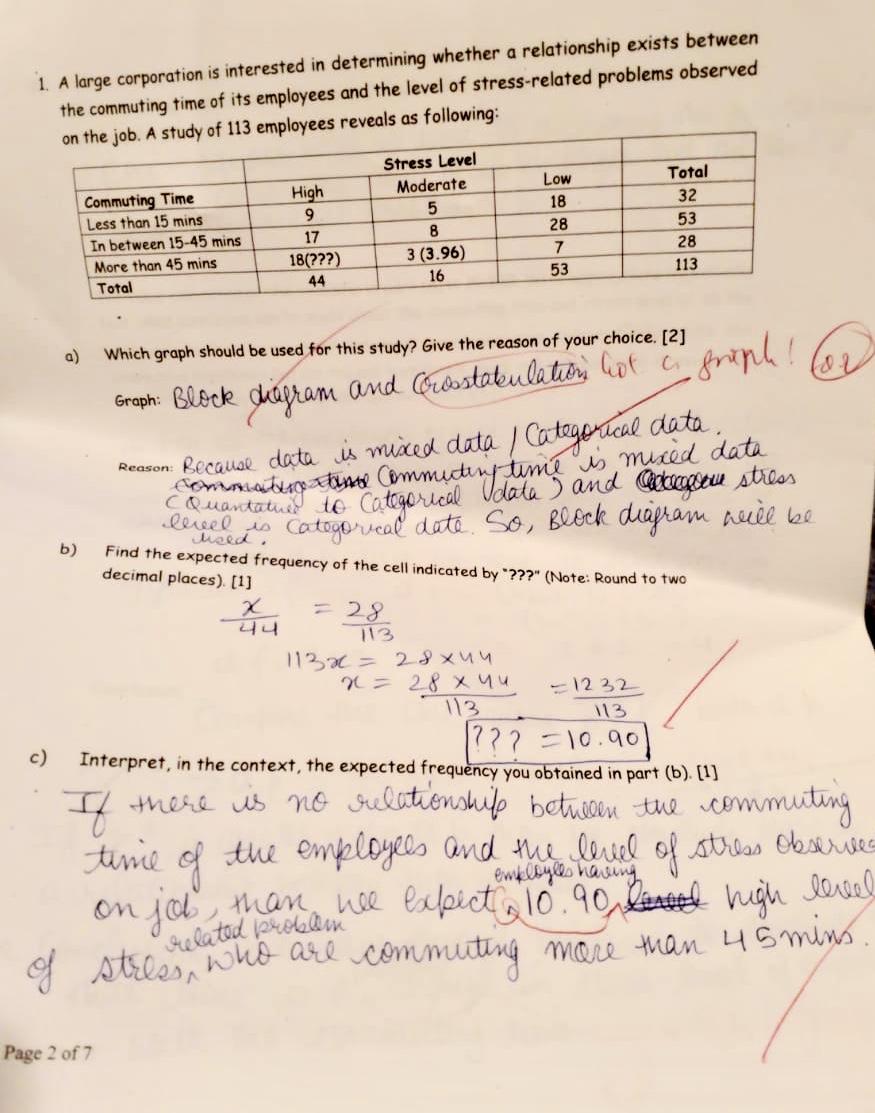 1. A large corporation is interested in determining whether a relationship exists between
the commuting time of its employees and the level of stress-related problems observed
on the job. A study of 113 employees reveals as following:
Stress Level
Commuting Time High Moderate Low Total
Less than 15 mins 9 5 18 32
In between 15-45 mins 17 8 28 53
More than 45 mins 18(???) 3 (3.96) 7 28
Total 44 16 53 113
a) Which graph should be used for this study? Give the reason of your choice. [2]
Graph: Block diagram and Crosstabulation Not a graph!
Reason: Because data is mixed data / Categorical data.
Commuting time is mixed data
(Quantative to Categorical data) and stress
level is Categorical data. So, Block diagram will be
used.
b) Find the expected frequency of the cell indicated by "???" (Note: Round to two
decimal places). [1]
x/44 = 28/113
113x = 28 x 44
x = 28 x 44/113 = 1232/113
??? = 10.90
c) Interpret, in the context, the expected frequency you obtained in part (b). [1]
If there is no relationship between the commuting
time of the employees and the level of stress observed
employees having
on job, than we expect 10.90 high level
related problem
of stress, who are commuting more than 45 mins.
Page 2 of 7